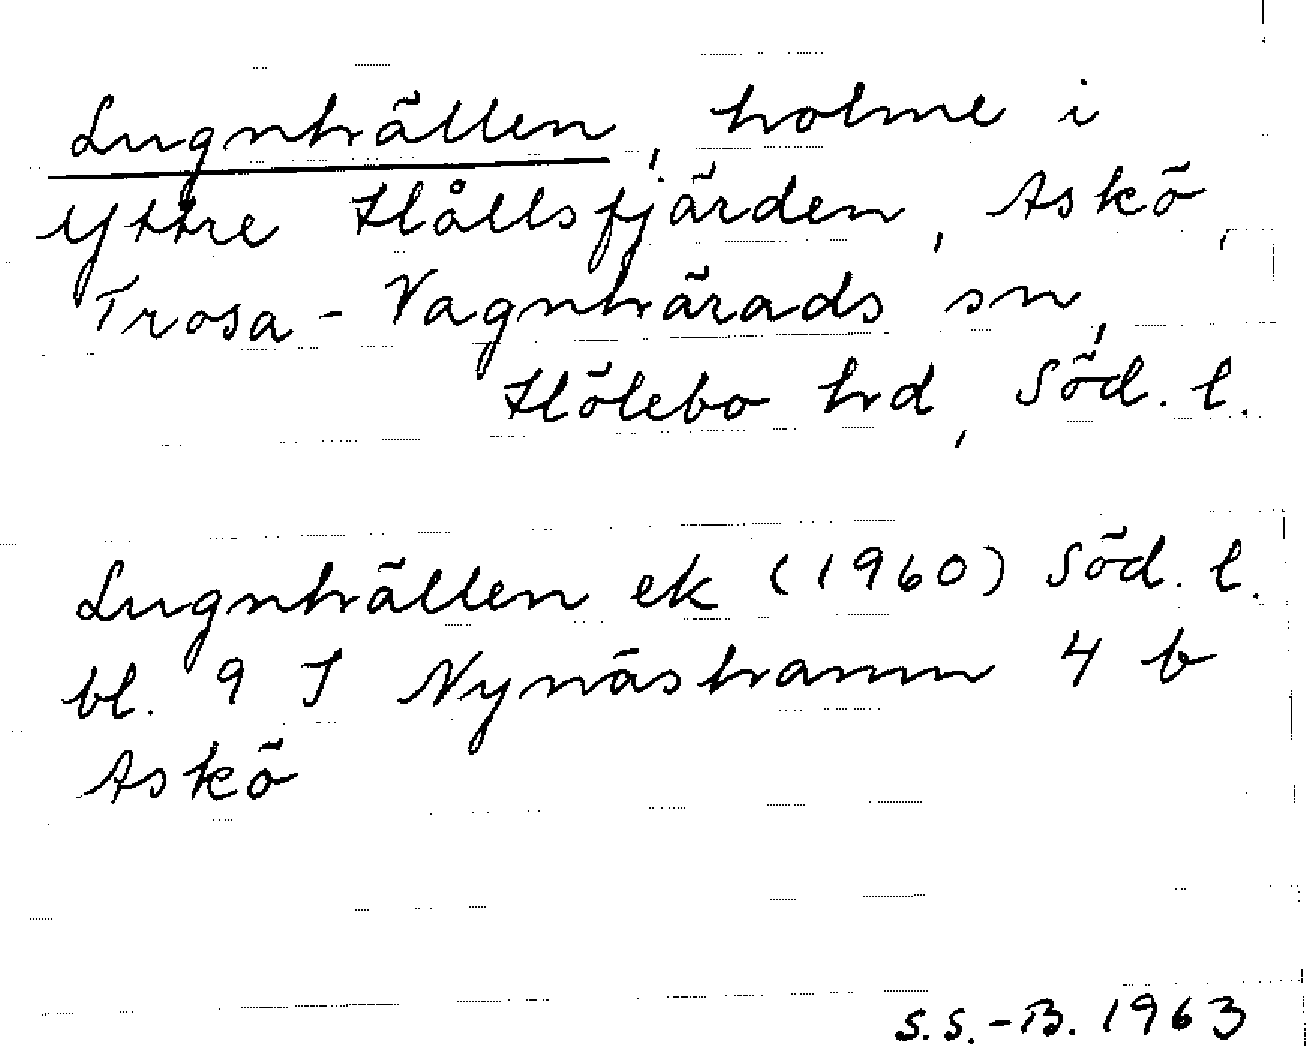 Lugnhällen, holme i
Yttre Hållsfjärden, Askö,
Trosa-Vagnhärads sn,
Hölebo hd, Söd. l.
Lugnhällen ek (1960) Söd. l.
bl. 9 I Nynäshamn 4 b
Askö
S.S.-B. 1963